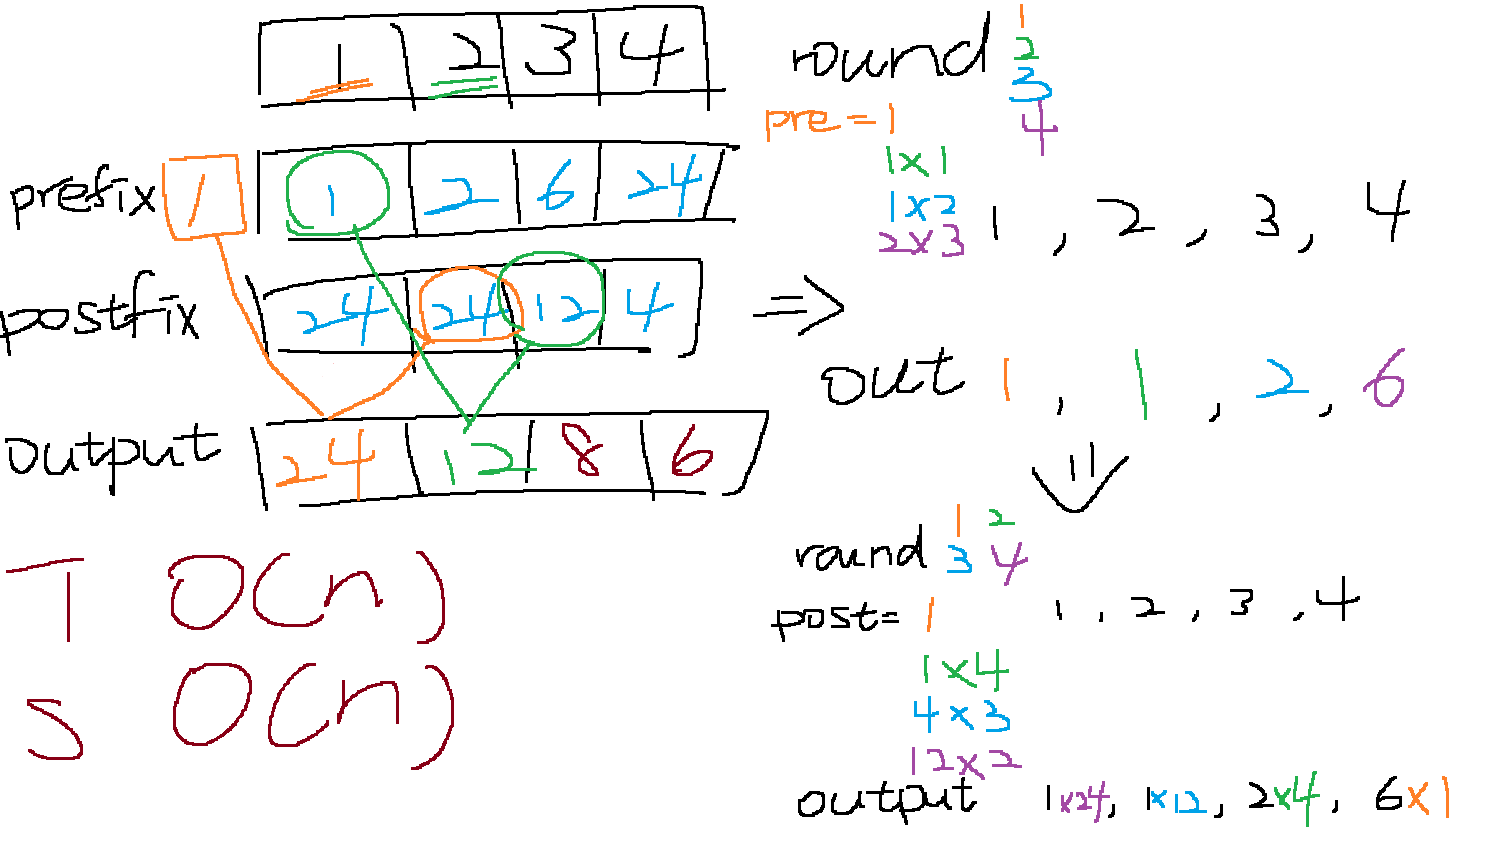 1 2 3 4
prefix 1 1 2 6 24
postfix 24 24 12 4
output 24 12 8 6
T O(n)
S O(n)
round 1
2
3
4
pre = 1
1x1
1x2
2x3
1 , 2 , 3 , 4
=>
out 1 , 1 , 2 , 6
round 1 2
3 4
post= 1
1x4
4x3
12x2
1 , 2 , 3 , 4
output 1x24, 1x12, 2x4, 6x1